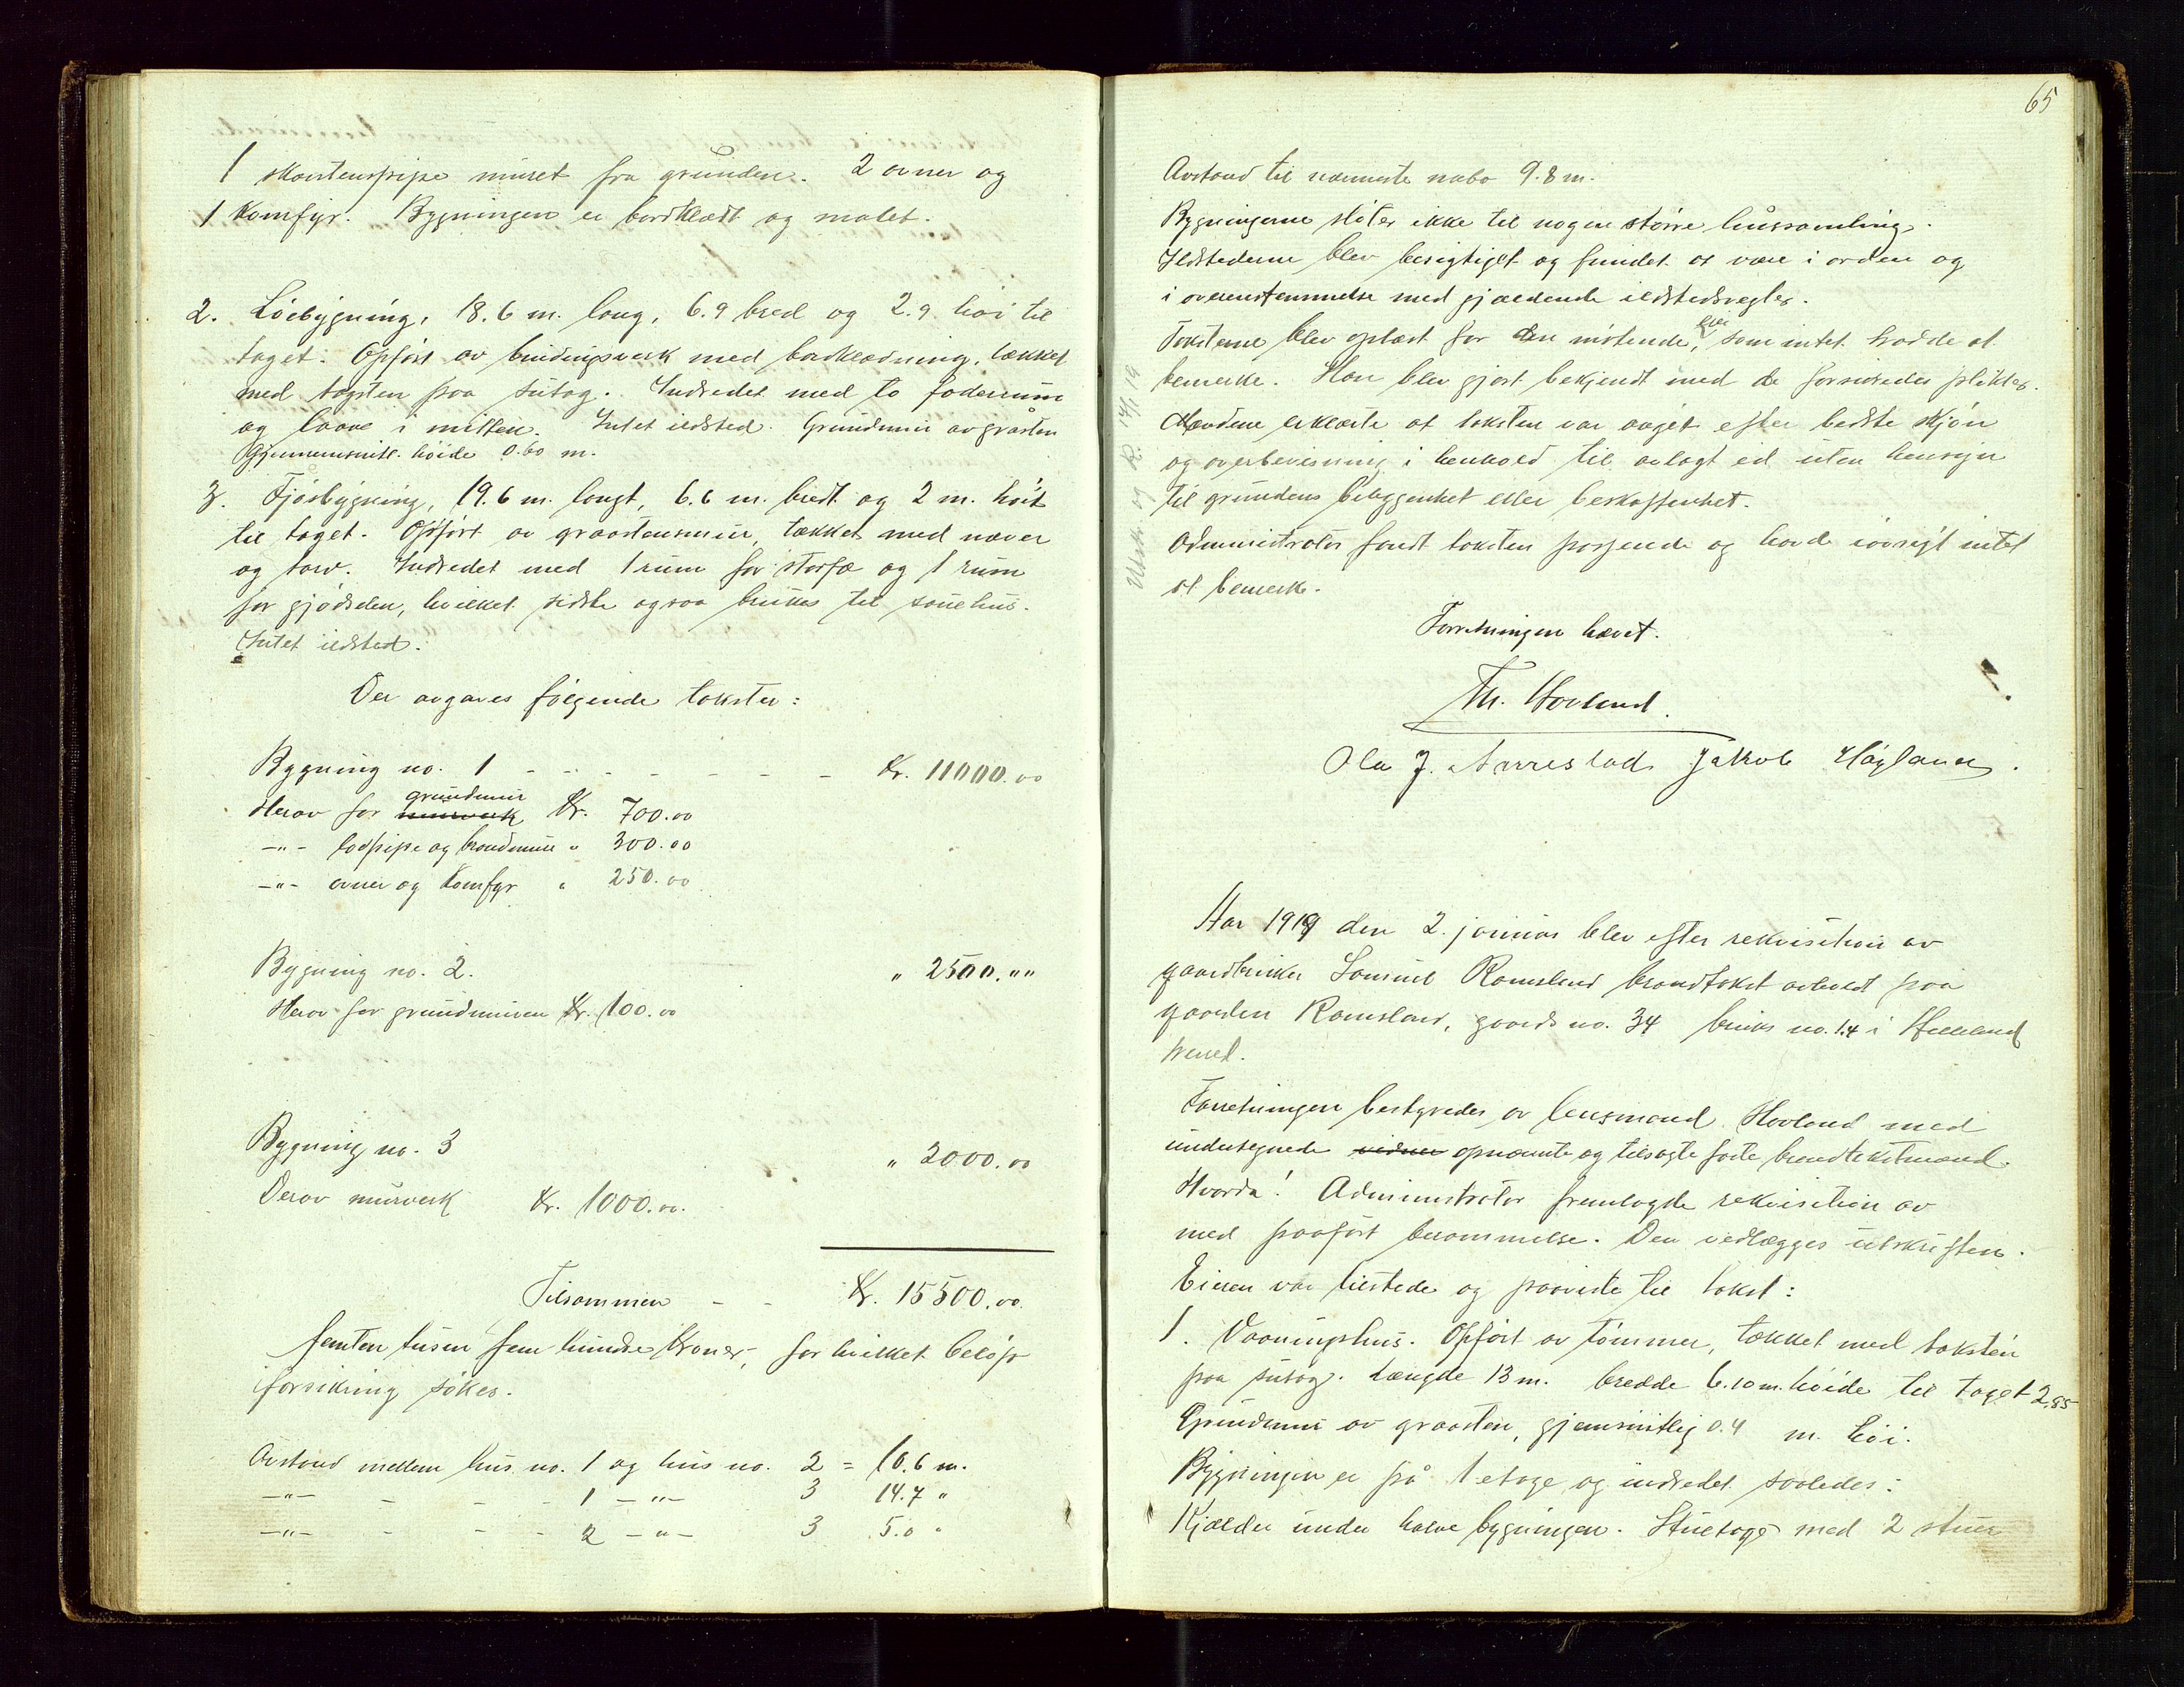 1 skorstenspipe muret fra grunden. 2 ovner og
1 Komfyr. Bygningen er bordklædt og malet.
2. Löebygning, 18.6 m. lang, 6.9 bred og 2.9 höi til
taget. Opfört av bindingsverk med bordklædning, tækket
med tagsten paa sutag. Indredet med to foderrum
og laave i mitten. Intet ildsted. Grundmur av gråsten
Gjennemsnitl. höide 0.60 m.
3. Fjösbygning, 19.6 m. langt, 6.6 m. bredt og 2 m. höit
til taget. Opfört av graastensmur, tækket med næver
og torv. Indredet med 1 rum for storfæ og 1 rum
for gjödselen, hvilket sidste ogsaa brukes til sauehus.
Intet ildsted.
Der avgaves fölgende takster:
Bygning no. 1 - - - - - - - Kr. 11000.00
Herav for murverk grundmur Kr. 700.00
-"- lodpipe og brandmur " 300.00
-"- ovner og Komfyr " 250.00
Bygning no. 2. " 2500.""
Herav for grundmuren Kr. 100.00
Bygning no. 3 " 2000.00
Derav murverk Kr. 1000.00.
Tilsammen - - Kr. 15500.00.
femten tusen fem hundre kroner, for hvilket belöp
forsikring sökes.
Avstand mellem hus no. 1 og hus no. 2 = 10.6 m.
-"- - - - 1 -"- 3 14.7 "
-"- - - - 2 -"- 3 5.0 "
65
Avstand til nærmeste nabo 9.8 m.
Bygningerne stöter ikke til nogen större hussamling.
Ildstederne blev besigtiget og fundet at være i orden og
i overenstemmelse med gjældende ildstedsregler.
Taksterne blev oplæst for den mötende, eier som intet hadde at
bemerke. Han blev gjort bekjendt med de forsikredes plikter.
Mændene erklærte at taksten var avgit efter bedste skjön
og overbevisning i henhold til avlagt ed uten hensyn
til grundens beliggenhet eller beskaffenhet.
Administrator fandt taksten passende og havde iövrigt intet
at bemerke.
Utsk. og R. 14/1 19
Forretningen hævet.
Th. Hovland.
Ola J. Aarrestad Jakob Høgland.
Aar 1919 den 2. januar blev efter rekvisition av
gaardbruker Samuel Ramsland brandtakst avholdt paa
gaarden Ramsland, gaards no. 34 bruks no. 1.4 i Helleland
herred.
Forretningen bestyredes av lensmand Hovland med
undertegnede vidner opnævnte og tilsagte faste brandtakstmænd.
Hvorda! Administrator fremlagde rekvisition av
med paafört berammelse. Den vedlægges utskriften.
Eieren var tilstede og paaviste til takst:
1. Vaaningshus. Opfört av tömmer, tækket med taksten
paa sutag. Længde 13 m. bredde 6.10 m. höide til taget 2,85
Grundmur av graasten, gjemsnitlig 0.4 m. höi.
Bygningen er på 1 etage og indredet saaledes:
Kjælder under halve bygningen. Stuetage med 2 stuer